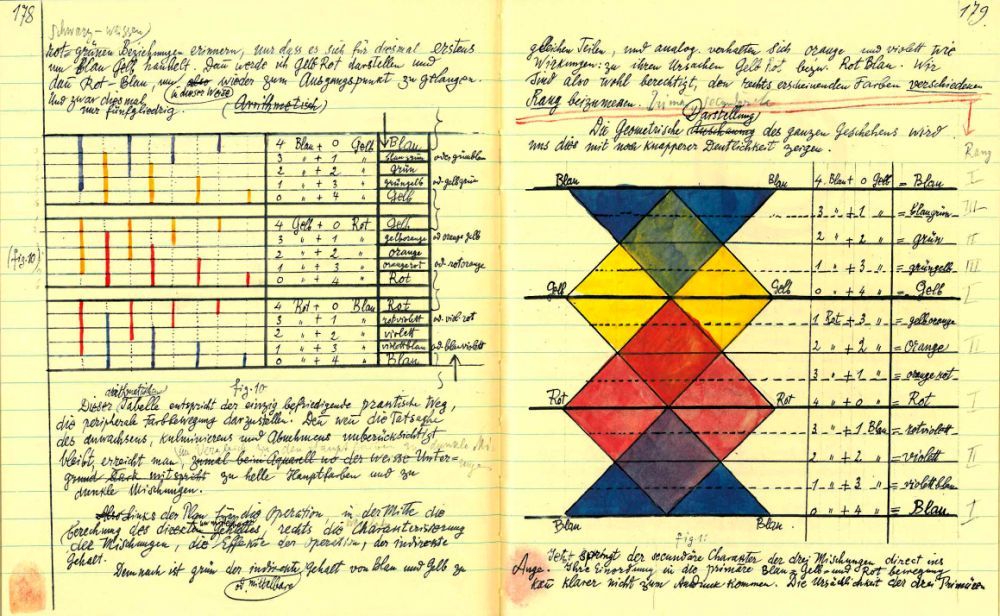 178
schwarz-weissen
rot-grünen Beziehungen erinnern, nur dass es sich für diesmal erstens
um Blau Gelb handelt. Dann werde ich Gelb Rot darstellen und
dann Rot-Blau, um also wieder zum Ausgangspunkt zu gelangen.
(in dieser Weise)
Und zwar diesmal (Arithmetisch)
nur fünfgliedrig.
4 Blau + 0 Gelb Blau
3 " + 1 " blaugrün odes grünblau
2 " + 2 " Grün
1 " + 3 " grüngelb od gelbgrün
0 " + 4 " Gelb
4 Gelb + 0 Rot Gelb
3 " + 1 " gelborange od orange gelb
(fig. 10) 2 " + 2 " orange
1 " + 3 " orangerot od. rotorange
0 " + 4 " Rot
4 Rot + 0 Blau Rot
3 " + 1 " rotviolett od. viol-rot
2 " + 2 " violett
1 " + 3 " violettblau od. blauviolett
0 " + 4 " Blau
fig. 10
arithmetischen
Dieser Tabelle entspricht der einzig befriedigende practische Weg,
die peripherale Farbbewegung darzustellen. Denn wenn die Tatsache
des anwachsens, kulminierens und Abnehmens unberücksichtigt
bleibt, erreicht man, zumal beim Aquarell wo der weisse Unter-
grund stark mitspricht zu helle Hauptfarben und zu
dunkle Mischungen.
Links der Plan die Operation, in der Mitte die
Berechnung des directen Gehaltes, rechts die Characterisierung
der Mischungen, die Effekte der operation, der indirecte
Gehalt.
Demnach ist grün der indirecte Gehalt von Blau und Gelb zu
od. mittelbare
179.
gleichen Teilen, und analog verhalten sich orange und violett wie
Wirkungen: zu ihren Ursachen Gelb Rot bezw. Rot Blau. Wir
sind also wohl berechtigt, den rechts erscheinenden Farben verschiedenen
Rang beizumessen.
Darstellung
Die Geometrische Anschauung des ganzen Geschehens wird
uns dies mit noch knapperer Deutlichkeit zeigen.
Rang
Blau Blau 4 Blau + 0 Gelb = Blau I
3 " + 1 " = blaugrün III
2 " + 2 " = grün II
1 " + 3 " = grüngelb III
Gelb Gelb 0 " + 4 " = Gelb I
1 Rot + 3 " = gelborange III
2 " + 2 " = Orange II
3 " + 1 " = orangerot
Rot Rot 4 " + 0 " = Rot I
3 " + 1 Blau = rotviolett
2 " + 2 " = violett II
1 " + 3 " = violettblau
Blau Blau 0 " + 4 " = Blau I
fig. 1:
Jetzt springt der secundäre Character der drei Mischungen direct ins
Auge. Ihre Einordnung in die primäre Blau-Gelb- und Rot bewegung
kann klarer nicht zum Ausdruck kommen. Die Ursächlichkeit der drei Primären